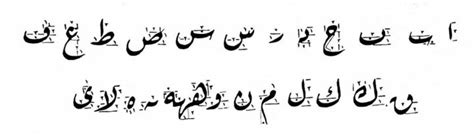 ا ب ن ج د ر س س ص ط ع ف
ق ك ك ل م ن و ه ه لا ي